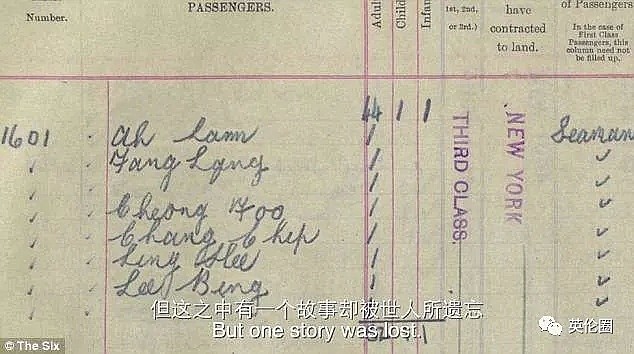 Number.
PASSENGERS.
Adul
Child
Infan
1st, 2nd,
or 3rd.)
have
contracted
to land.
of Passengers
In the case of
First Class
Passengers, this
column need not
be filled up.
44 1 1
1601 Ah Lam Seaman
Fang Lang
Cheong Foo
Chang Chip
Ling Hee
Lee Bing
THIRD CLASS.
NEW YORK
但这之中有一个故事却被世人所遗忘
But one story was lost.
© The Six
英伦圈